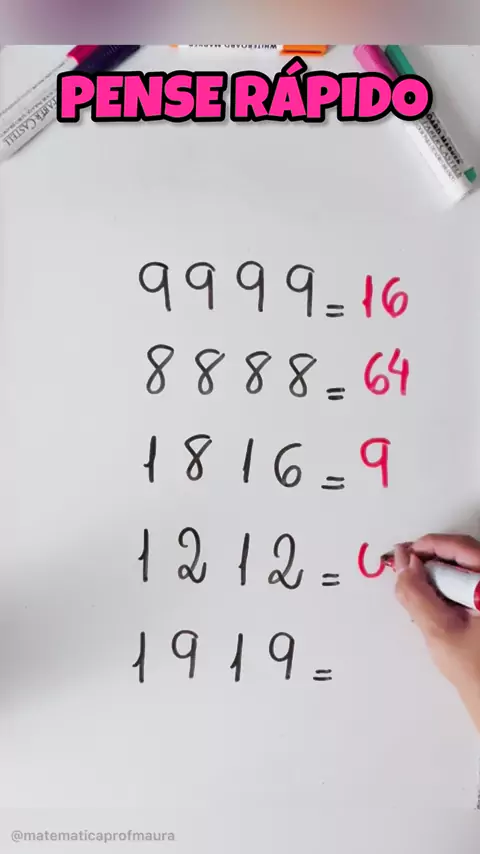 WHITEBOARD MARKER
PENSE RÁPIDO
9999=16
8888=64
1816=9
1212=
1919=
@matematicaprofmaura